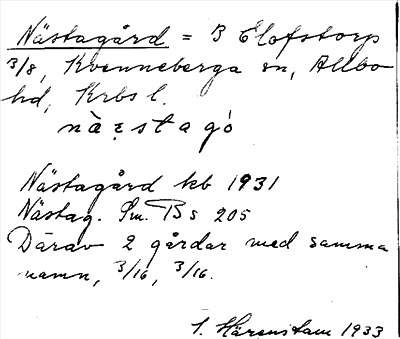 Nästagård = B Elofstorp
3/8, Kvenneberga sn, Allbo
hd, Krbs l.
næstagó
Nästagård kb 1931
Nästag. Sm. Bs 205
Därav 2 gårdar med samma
namn, 3/16, 3/16.
Härenstam 1933